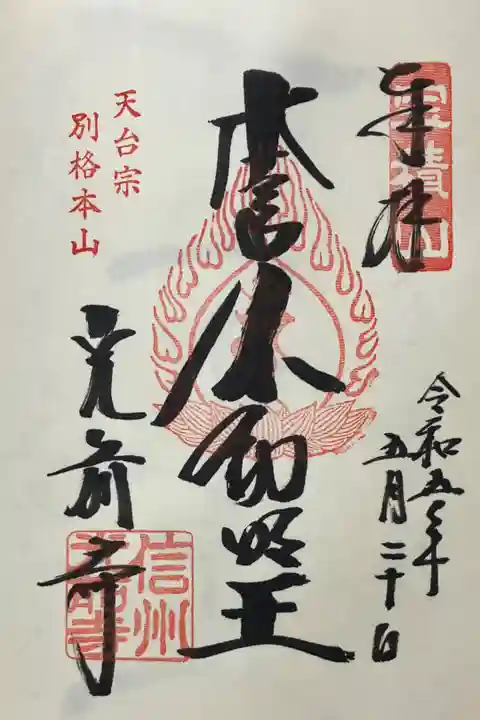 奉拝
宝積山
令和五年
五月二十日
本尊不動明王
天台宗
別格本山
光前寺
信州
光前寺